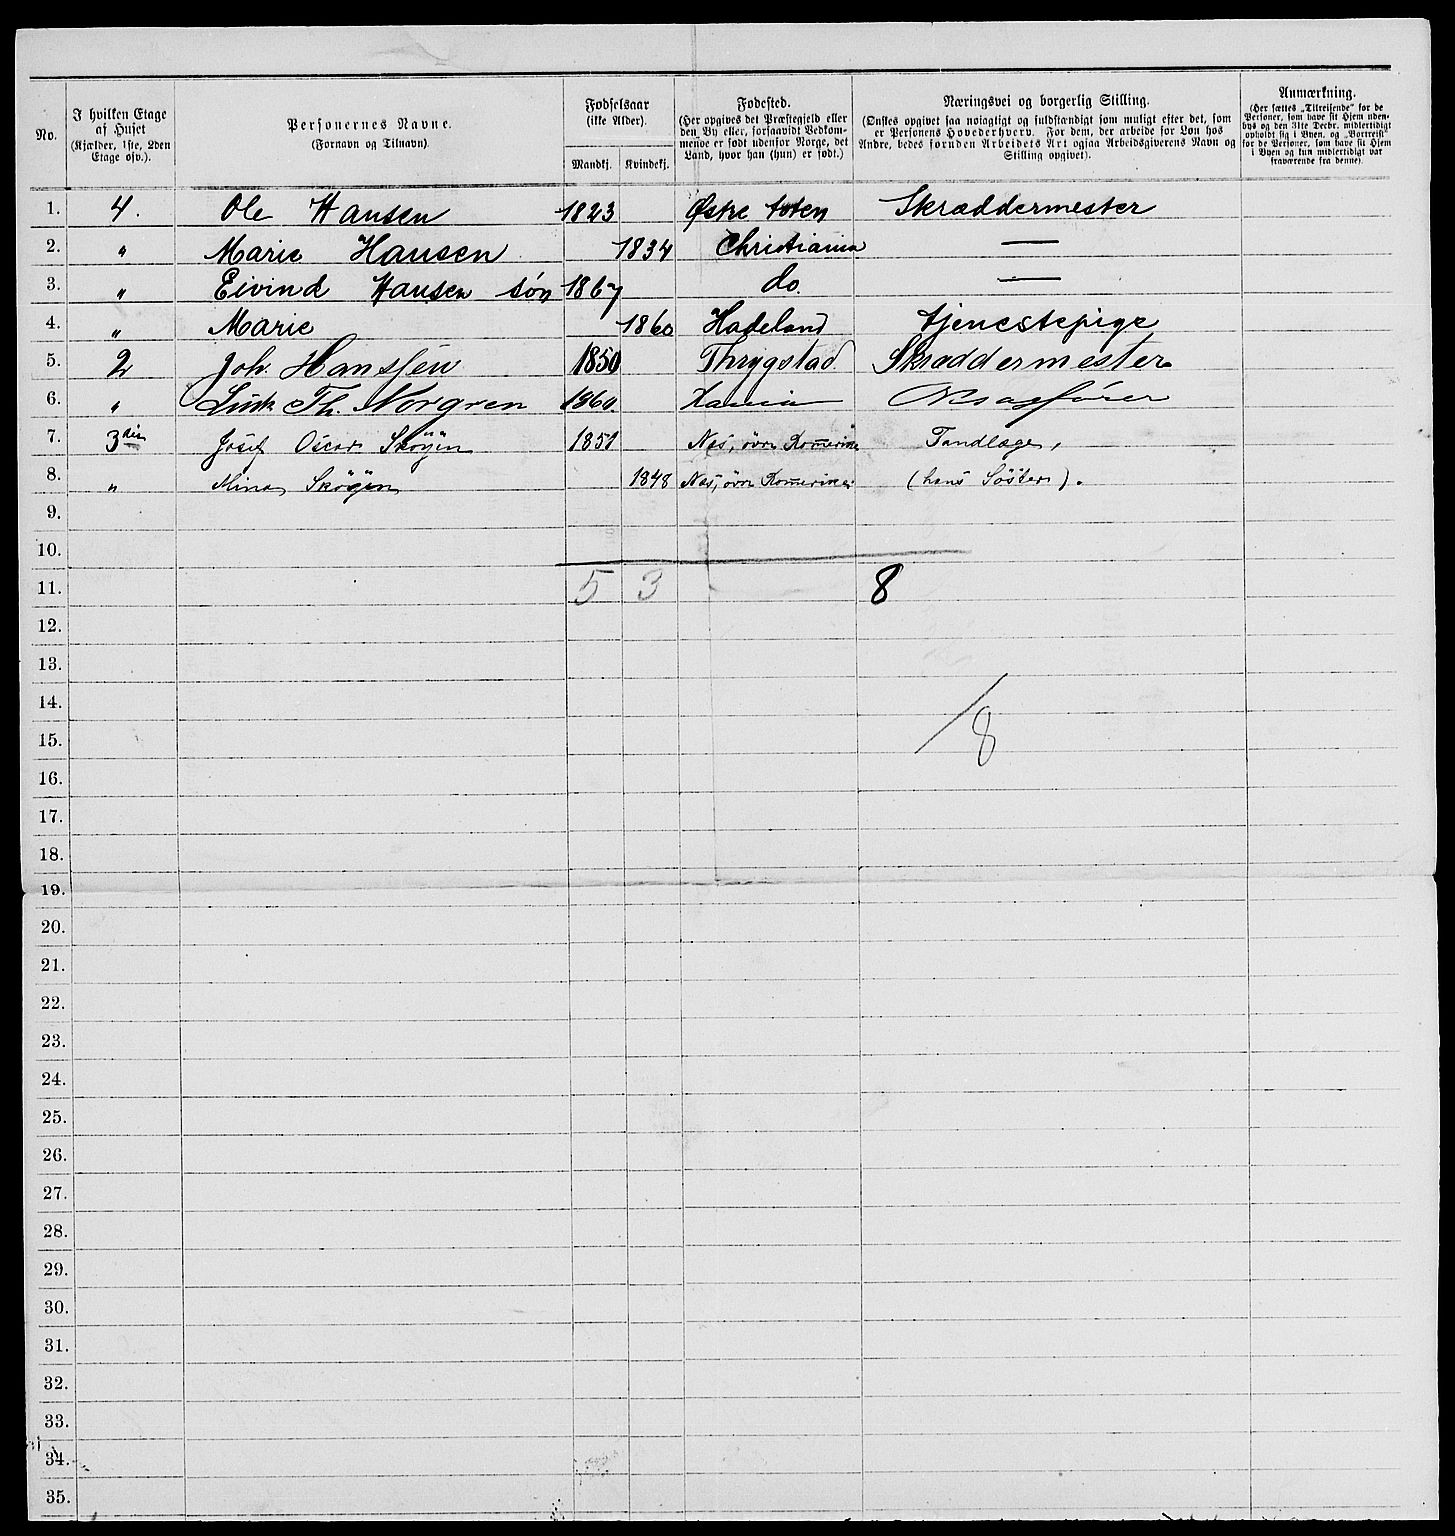 No.
I hvilken Etage af Huset (Kjælder, 1ste, 2den Etage osv.).
Personernes Navne. (Fornavn og Tilnavn).
Fødselsaar (ikke Alder).
Mandkj. Kvindekj.
Fødested. (Her opgives det Præstegjeld eller den By eller, forsaavidt Vedkommende er født udenfor Norge, det Land, hvor han (hun) er født.)
Næringsvei og borgerlig Stilling. (Ønskes opgivet saa nøiagtigt og fuldstændigt som muligt efter det, som er Personens Hovederhverv. For dem, der arbeide for Løn hos Andre, bedes foruden Arbeidets Art ogsaa Arbeidsgiverens Navn og Stilling opgivet).
Anmærkning. (Her sættes „Tilreisende“ for de Personer, som have sit Hjem udenbys og den 31te Decbr. midlertidigt opholdt sig i Byen, og „Bortreist“ for de Personer, som have sit Hjem i Byen og kun midlertidigt var fraværende fra denne).
1. 4. Ole Hansen 1823 Østre toten Skræddermester
2. " Marie Hansen 1834 Christiania —
3. " Eivind Hansen søn 1867 do. —
4. " Marie 1860 Hadeland tjenestepige
5. 2 Joh. Hanssen 1850 Thrygstad Skræddermester
6. " Th. Norgren 1860
7. 3die Josef Oscar Skøyen 1851 Næs, øvre Romerike Tandlæge,
8. " Mina Skøyen 1848 Næs, øvre Romerike (hans Søster).
9.
10.
11. 5 3 8
12.
13.
14.
15. / 8
16.
17.
18.
19.
20.
21.
22.
23.
24.
25.
26.
27.
28.
29.
30.
31.
32.
33.
34.
35.